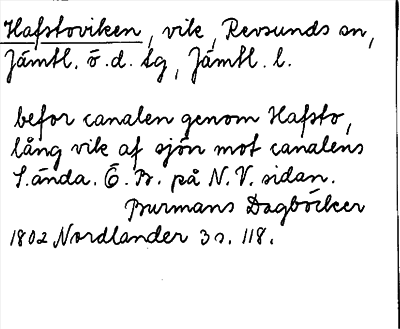 Hafstoviken, vik, Revsunds sn,
Jämtl. ö. d. tg, Jämtl. l.
befor canalen genom Hafsto,
lång vik af sjön mot canalens
S. ända. Ö. B. på N. V. sidan.
Burmans Dagböcker
1802 Nordlander 3 s. 118.